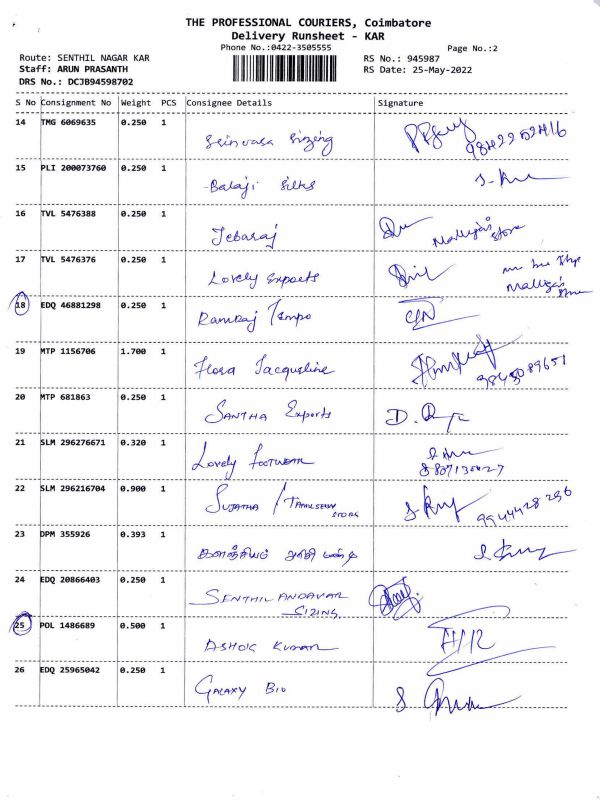 THE PROFESSIONAL COURIERS, Coimbatore
Delivery Runsheet - KAR
Phone No.:0422-3505555
Page No.:2
Route: SENTHIL NAGAR KAR
RS No.: 945987
Staff: ARUN PRASANTH
RS Date: 25-May-2022
DRS No.: DCJB94598702
S No Consignment No Weight PCS Consignee Details Signature
14 TMG 6069635 0.250 1 Srinivasa Sizing
15 PLI 200073760 0.250 1 Balaji Silks
16 TVL 5476388 0.250 1 Jebaraj Malligai Store
17 TVL 5476376 0.250 1 Lovely Exports Malligai
18 EDQ 46881298 0.250 1 Ramraj Tempo
19 MTP 1156706 1.700 1 Flora Jacqueline 9843089651
20 MTP 681863 0.250 1 SANTHA Exports
21 SLM 296276671 0.320 1 Lovely FOOTWEAR
22 SLM 296216704 0.900 1 SUJATHA / TAMILSELVI STORE 9944428296
23 DPM 355926 0.393 1 அரிசி மண்டி
24 EDQ 20866403 0.250 1 SENTHIL ANDAVAR
SIZING
25 POL 1486689 0.500 1 ASHOK KUMAR
26 EDQ 25965042 0.250 1 GALAXY BIO